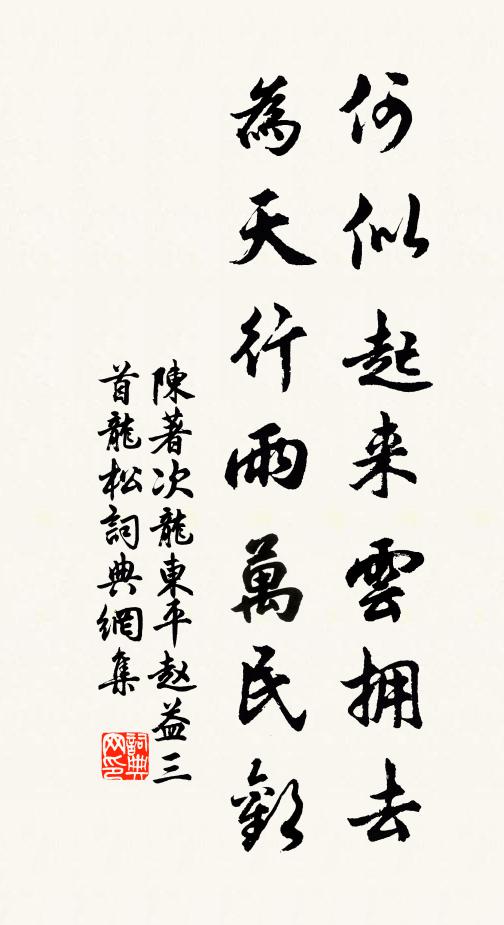 何似起来雲拥去
為天行雨萬民歡
陳著次龍東平赵益三
首龍松詞典網集
詞典網印